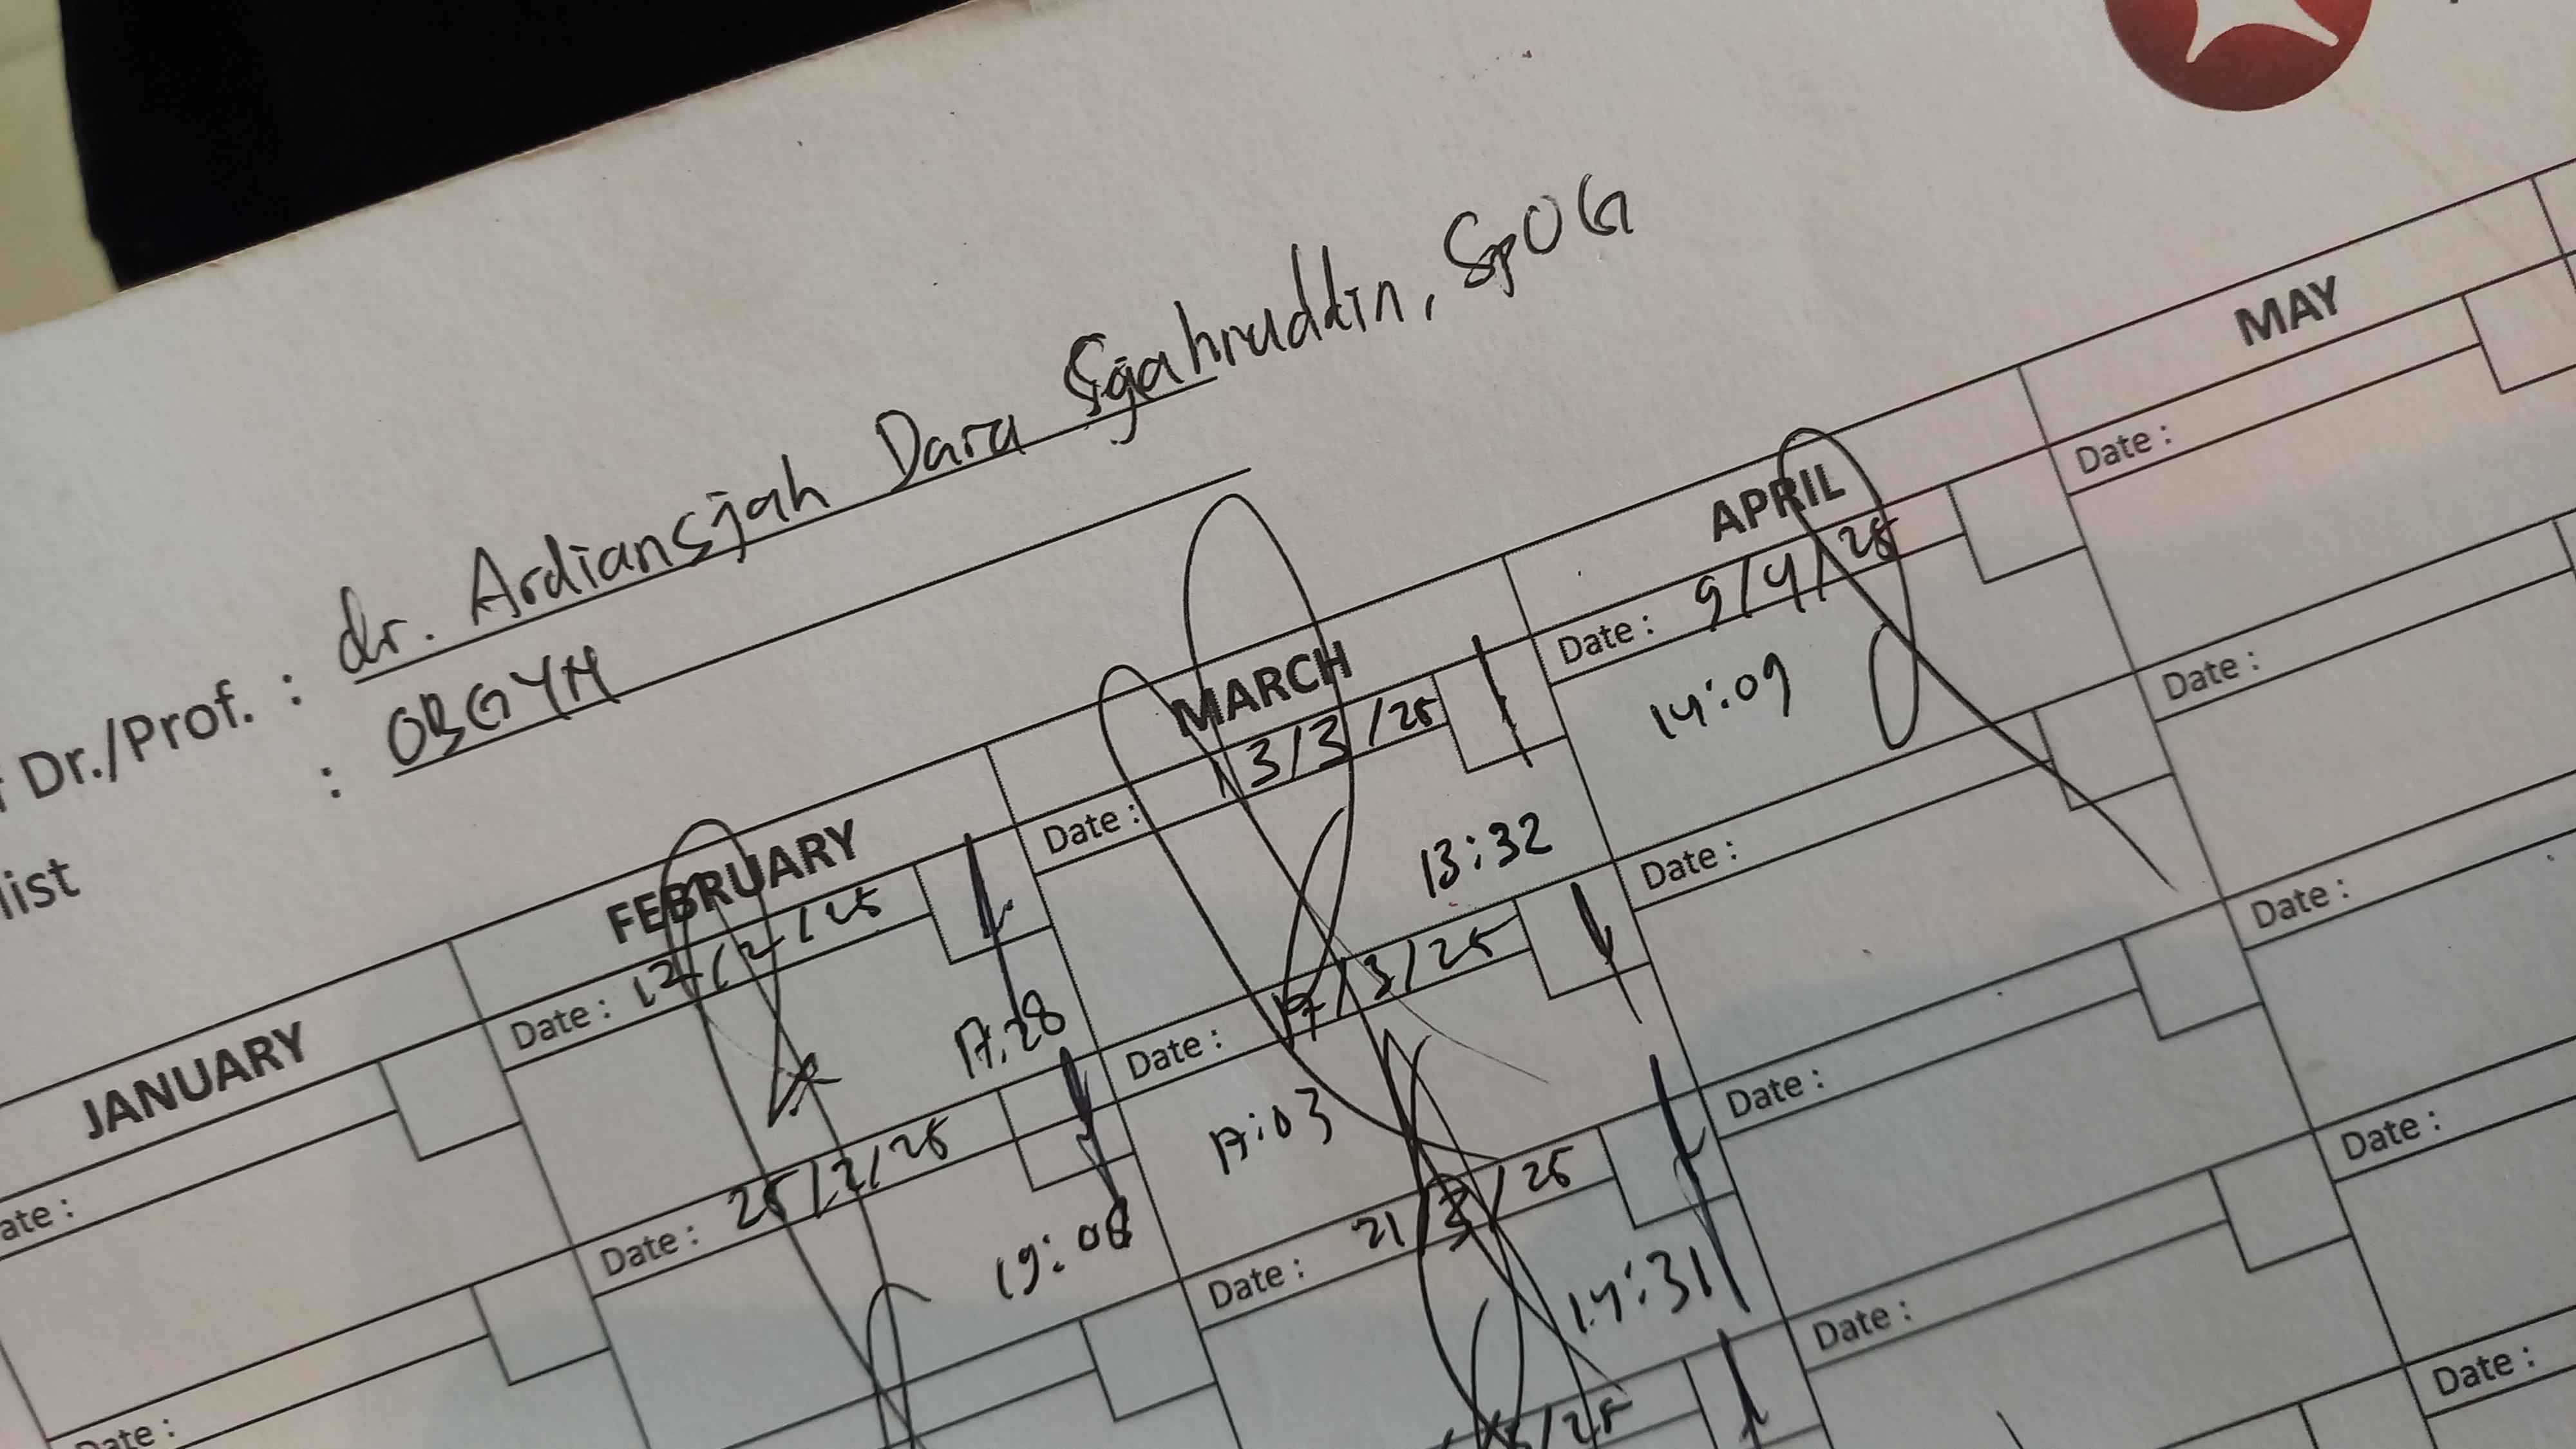 Dr./Prof. : dr. Ardiansjah Dara Sjahruddin, SpOG
list : OBGYN
JANUARY FEBRUARY MARCH APRIL MAY
Date : 12/2/25
17:28
Date : 25/2/25
19:08
Date : 3/3/25
13:32
Date : 17/3/25
17:03
Date : 21/3/25
14:31
/25
Date : 9/4/25
14:09
Date :
Date :
Date :
Date :
Date :
Date :
Date :
Date :
Date :